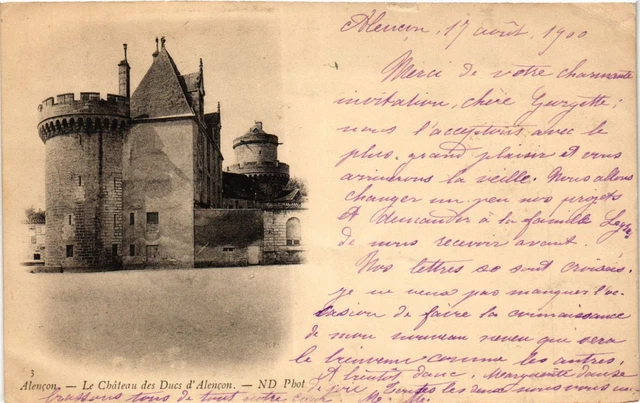 Alençon, 17 août, 1900
Merci de votre charmante
invitation, chère Georgette;
nous l'acceptons avec le
plus grand plaisir et vous
arriverons la veille. Nous allons
changer un peu nos projets
et demander à la famille
de nous recevoir avant.
Nos lettres se sont croisées.
je ne veux pas manquer l'oc-
casion de faire la connaissance
de mon nouveau neveu qui sera
le bienvenu comme les autres.
A bientôt donc. Marguerite danse
de joie, Toutes les deux nous vous em-
brassons tous de tout notre cœur.
3
Alençon. — Le Château des Ducs d'Alençon. — ND Phot